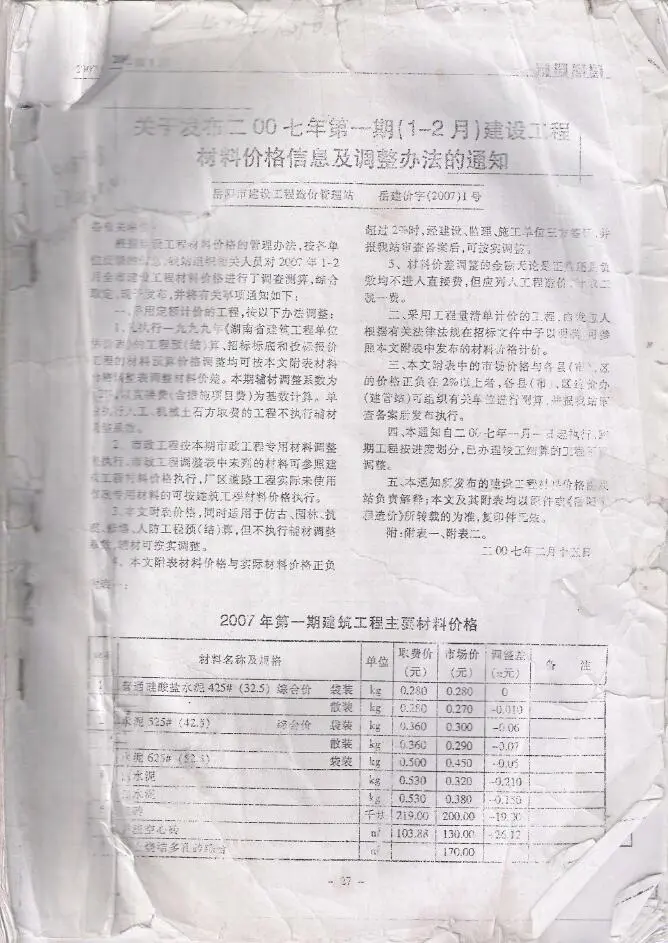 关于发布二00七年第一期(1-2月)建设工程
材料价格信息及调整办法的通知
岳阳市建设工程造价管理站 岳建价字(2007)1号
工程材料价格的管理办法,按各单
人员对2007年1-2
月全市建设工程材料价格进行了调查测算,综合
取定,现予发布,并将有关事项通知如下:
一、采用定额计价的工程,按以下办法调整:
1、凡执行一九九九年《湖南省建筑工程单位
的工程预(结)算、招标标底和投标报价
工程的材料预算价格调整均可按本文附表材料
调整表调整材料价差。本期辅材调整系数为
以直接费(含措施项目费)为基数计算。单
执行人工、机械土石方取费的工程不执行辅材
调整系数。
2、市政工程按本期市政工程专用材料调整
表执行,市政工程调整表中未列的材料可参照建
筑工程材料价格执行,厂区道路工程实际未使用
市政专用材料的可按建筑工程材料价格执行。
3、本文附表价格,同时适用于仿古、园林、
人防工程预(结)算,但不执行辅材调整
系数,辅材可按实调整。
4、本文附表材料价格与实际材料价格正负
超过2%时,经建设、监理、施工单位三方签证,并
报我站审查备案后,可按实调整。
5、材料价差调整的金额无论是正值还是负
数均不进入直接费,但应列入工程造价,计取
税费。
二、采用工程量清单计价的工程,由发包人
根据有关法律法规在招标文件中予以明确,可参
照本文附表中发布的材料价格计价。
三、本文附表中的市场价格与各县(市)、区
的价格正负在2%以上者,各县(市)、区造价办
(建管站)可组织有关单位进行测算,并报我站审
查备案后发布执行。
四、本通知自二00七年一月一日起执行,跨
期工程按进度划分,已办理竣工结算的工程不
调整。
五、本通知所发布的建设工程材料价格由我
站负责解释;本文及其附表均以原件或
程造价》所转载的为准,复印件无效。
附:附表一、附表二。
二00七年二月十五日
附表一:
2007年第一期建筑工程主要材料价格
材料名称及规格 单位 取费价(元) 市场价(元) 调整差(±元) 备 注
1 普通硅酸盐水泥425#(32.5) 综合价 袋装 kg 0.280 0.280 0
散装 kg 0.280 0.270 -0.010
水泥525#(42.5) 综合价 袋装 kg 0.360 0.300 -0.06
散装 kg 0.360 0.290 -0.07
水泥625#(52.5) 袋装 kg 0.500 0.450 -0.05
水泥 kg 0.530 0.320 -0.210
水泥 kg 0.530 0.380 -0.150
千块 219.00 200.00 -19.00
空心砖 m³ 103.88 130.00 26.12
烧结多孔砖综合 m³ 170.00
- 27 -